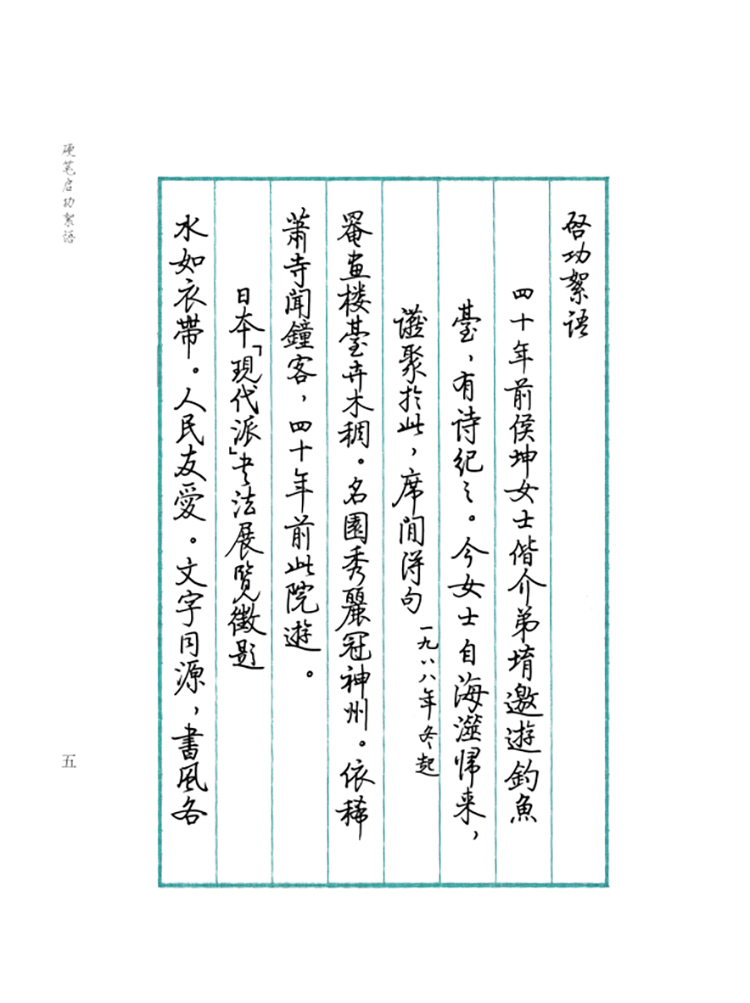 啓功絮语
四十年前侯坤女士偕介弟堉邀遊釣魚
臺，有诗纪之。今女士自海澨帰来，
讌聚於此，席间得句 一九八八年冬起
罨畫楼臺卉木稠。名園秀麗冠神州。依稀
萧寺聞鐘客，四十年前此院遊。
日本「現代派」书法展覽徵题
水如衣帶。人民友愛。文字同源，書風各
硬笔启功絮语
五